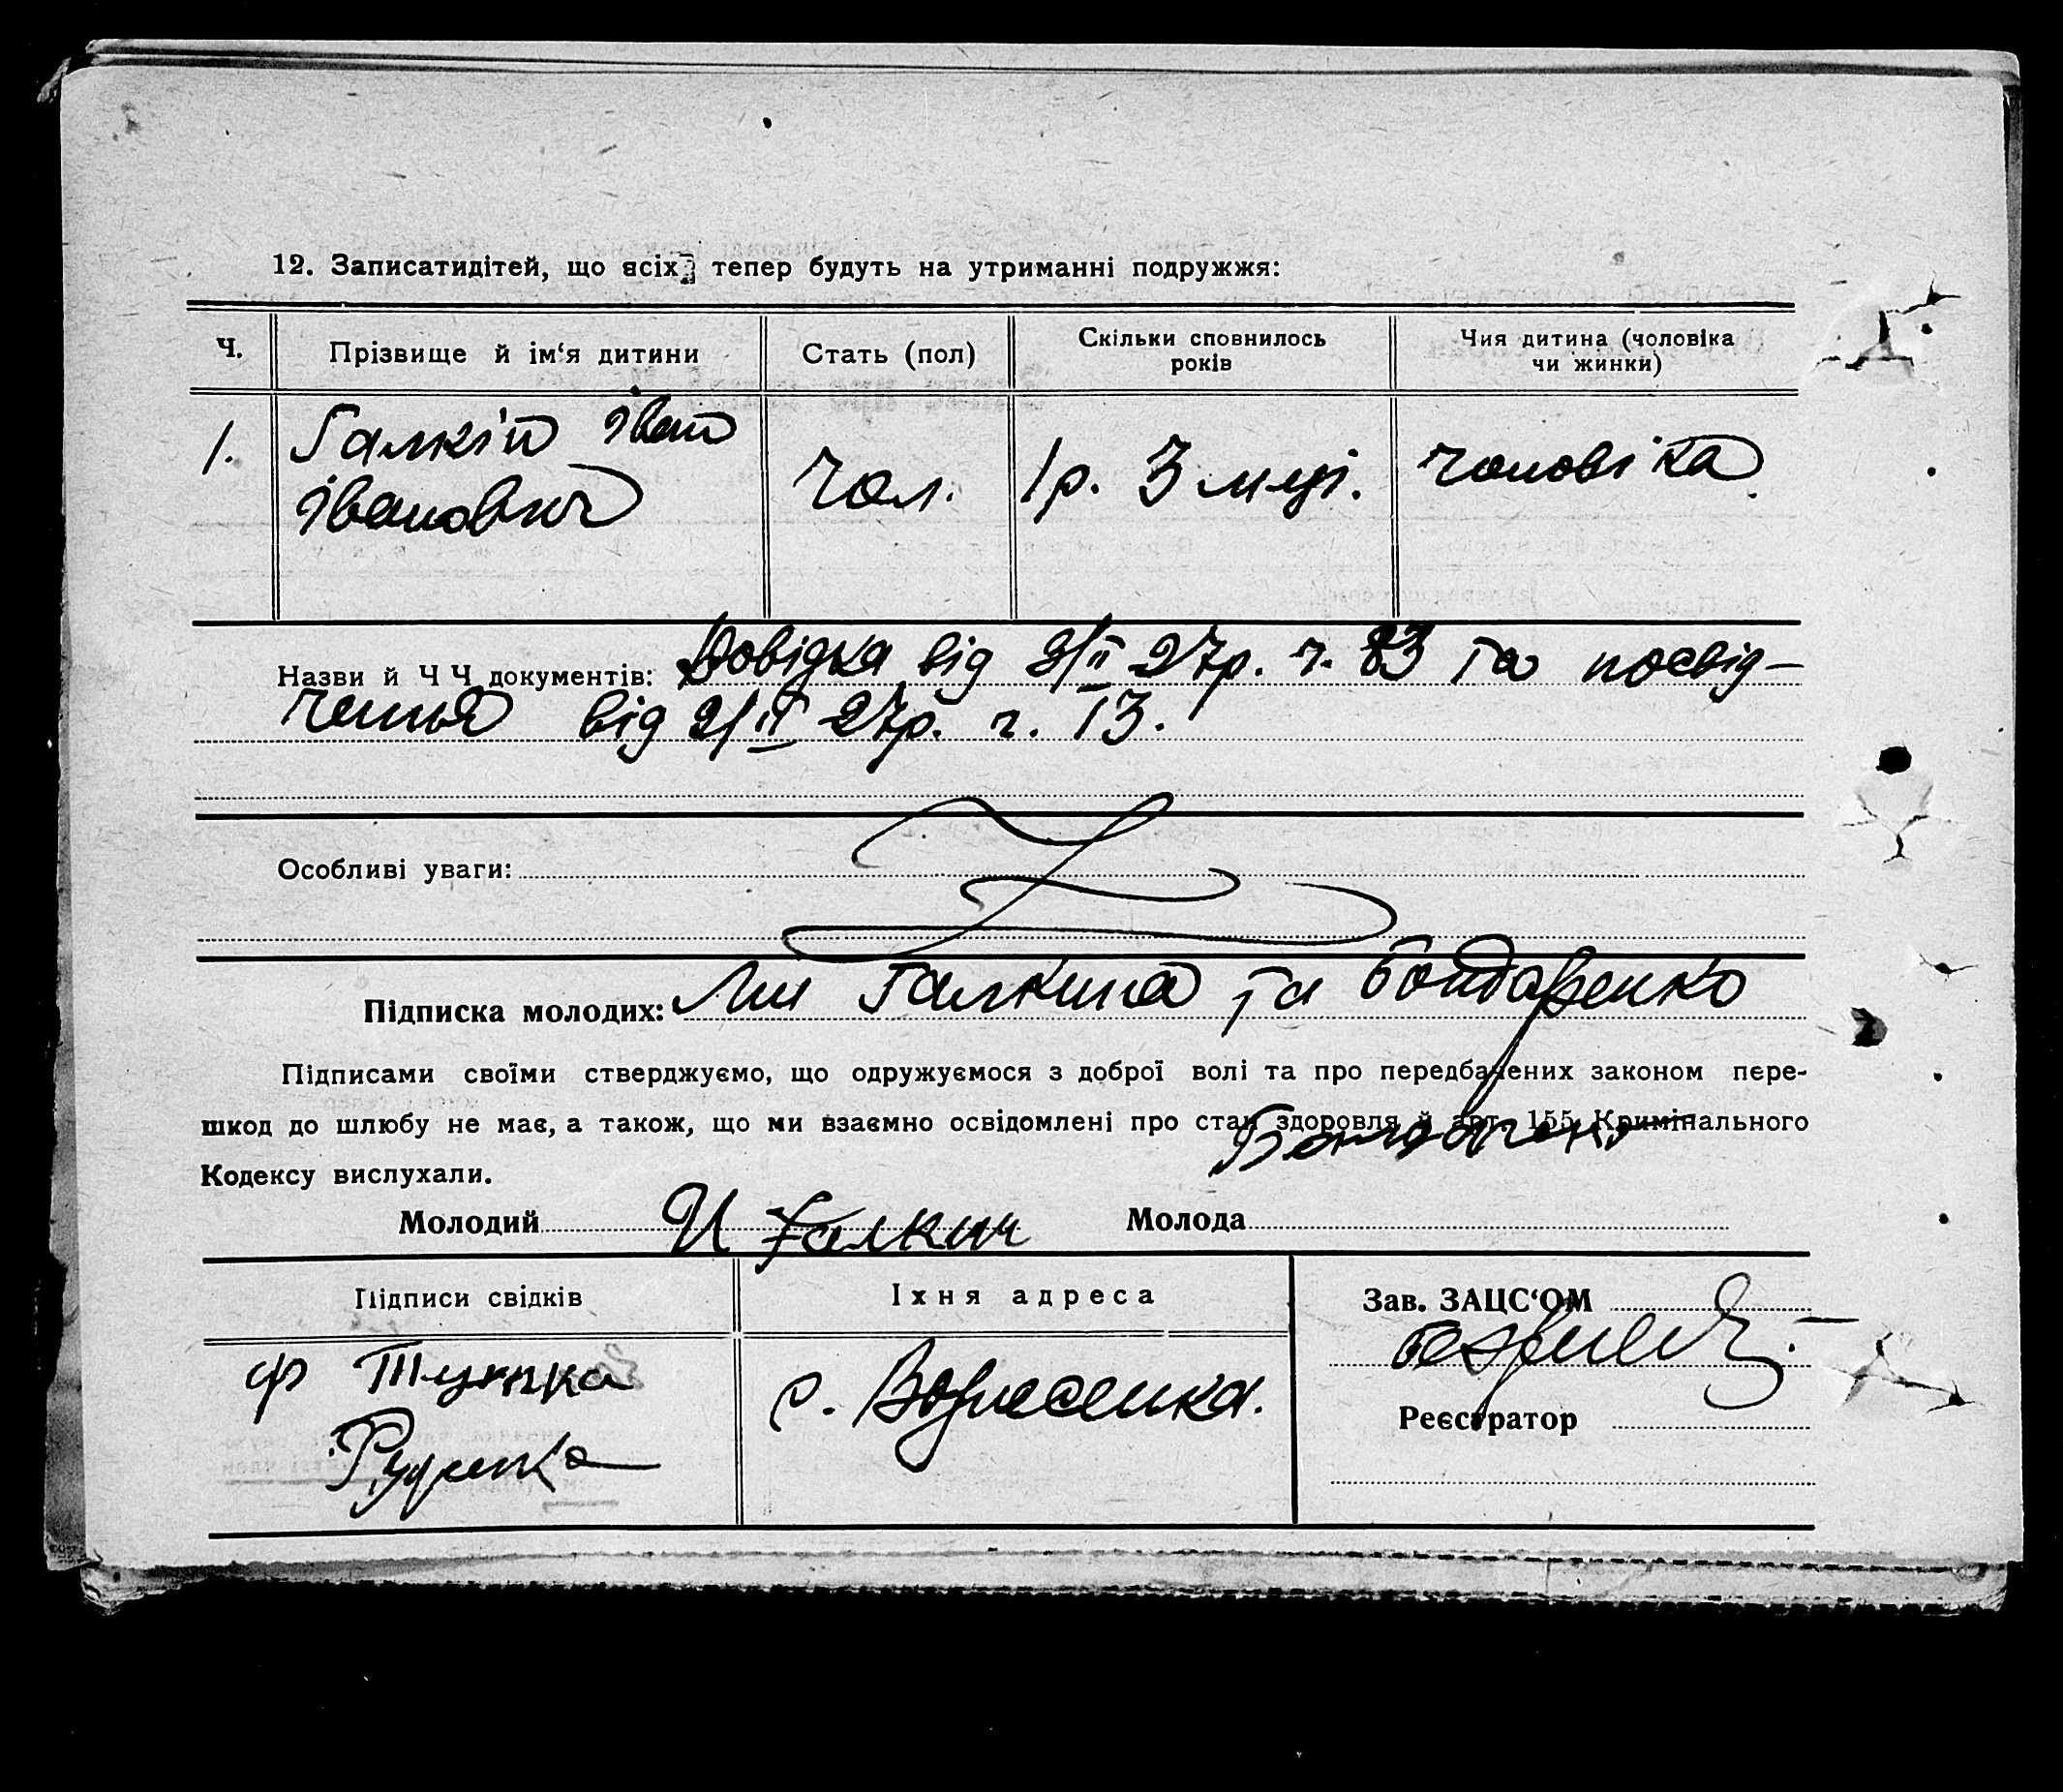 12. Записатидітей, що всіх тепер будуть на утриманні подружжя:
Ч. Прізвище й ім‘я дитини Стать (пол) Скільки сповнилось років Чия дитина (чоловіка чи жинки)
1. Галкін Іван Іванович чол. 1р. 3 міс. чоловіка
Назви й Ч Ч документів: Довідка від 2/II 27р. ч. 83 та посвід-
чення від 2/II 27р. ч. 13.
Особливі уваги:
Підписка молодих: Ми Галкина та Бондаренко
Підписами своїми стверджуємо, що одружуємося з доброї волі та про передбачених законом пере-
шкод до шлюбу не має, а також, що ми взаємно освідомлені про стан здоровля й арт. 155 Кримінального
Бондаренко
Кодексу вислухали.
Молодий И Галкин Молода
Підписи свідків Їхня адреса Зав. ЗАЦС‘ОМ
ф
с. Вознесенка.
Реєстратор
Руденко